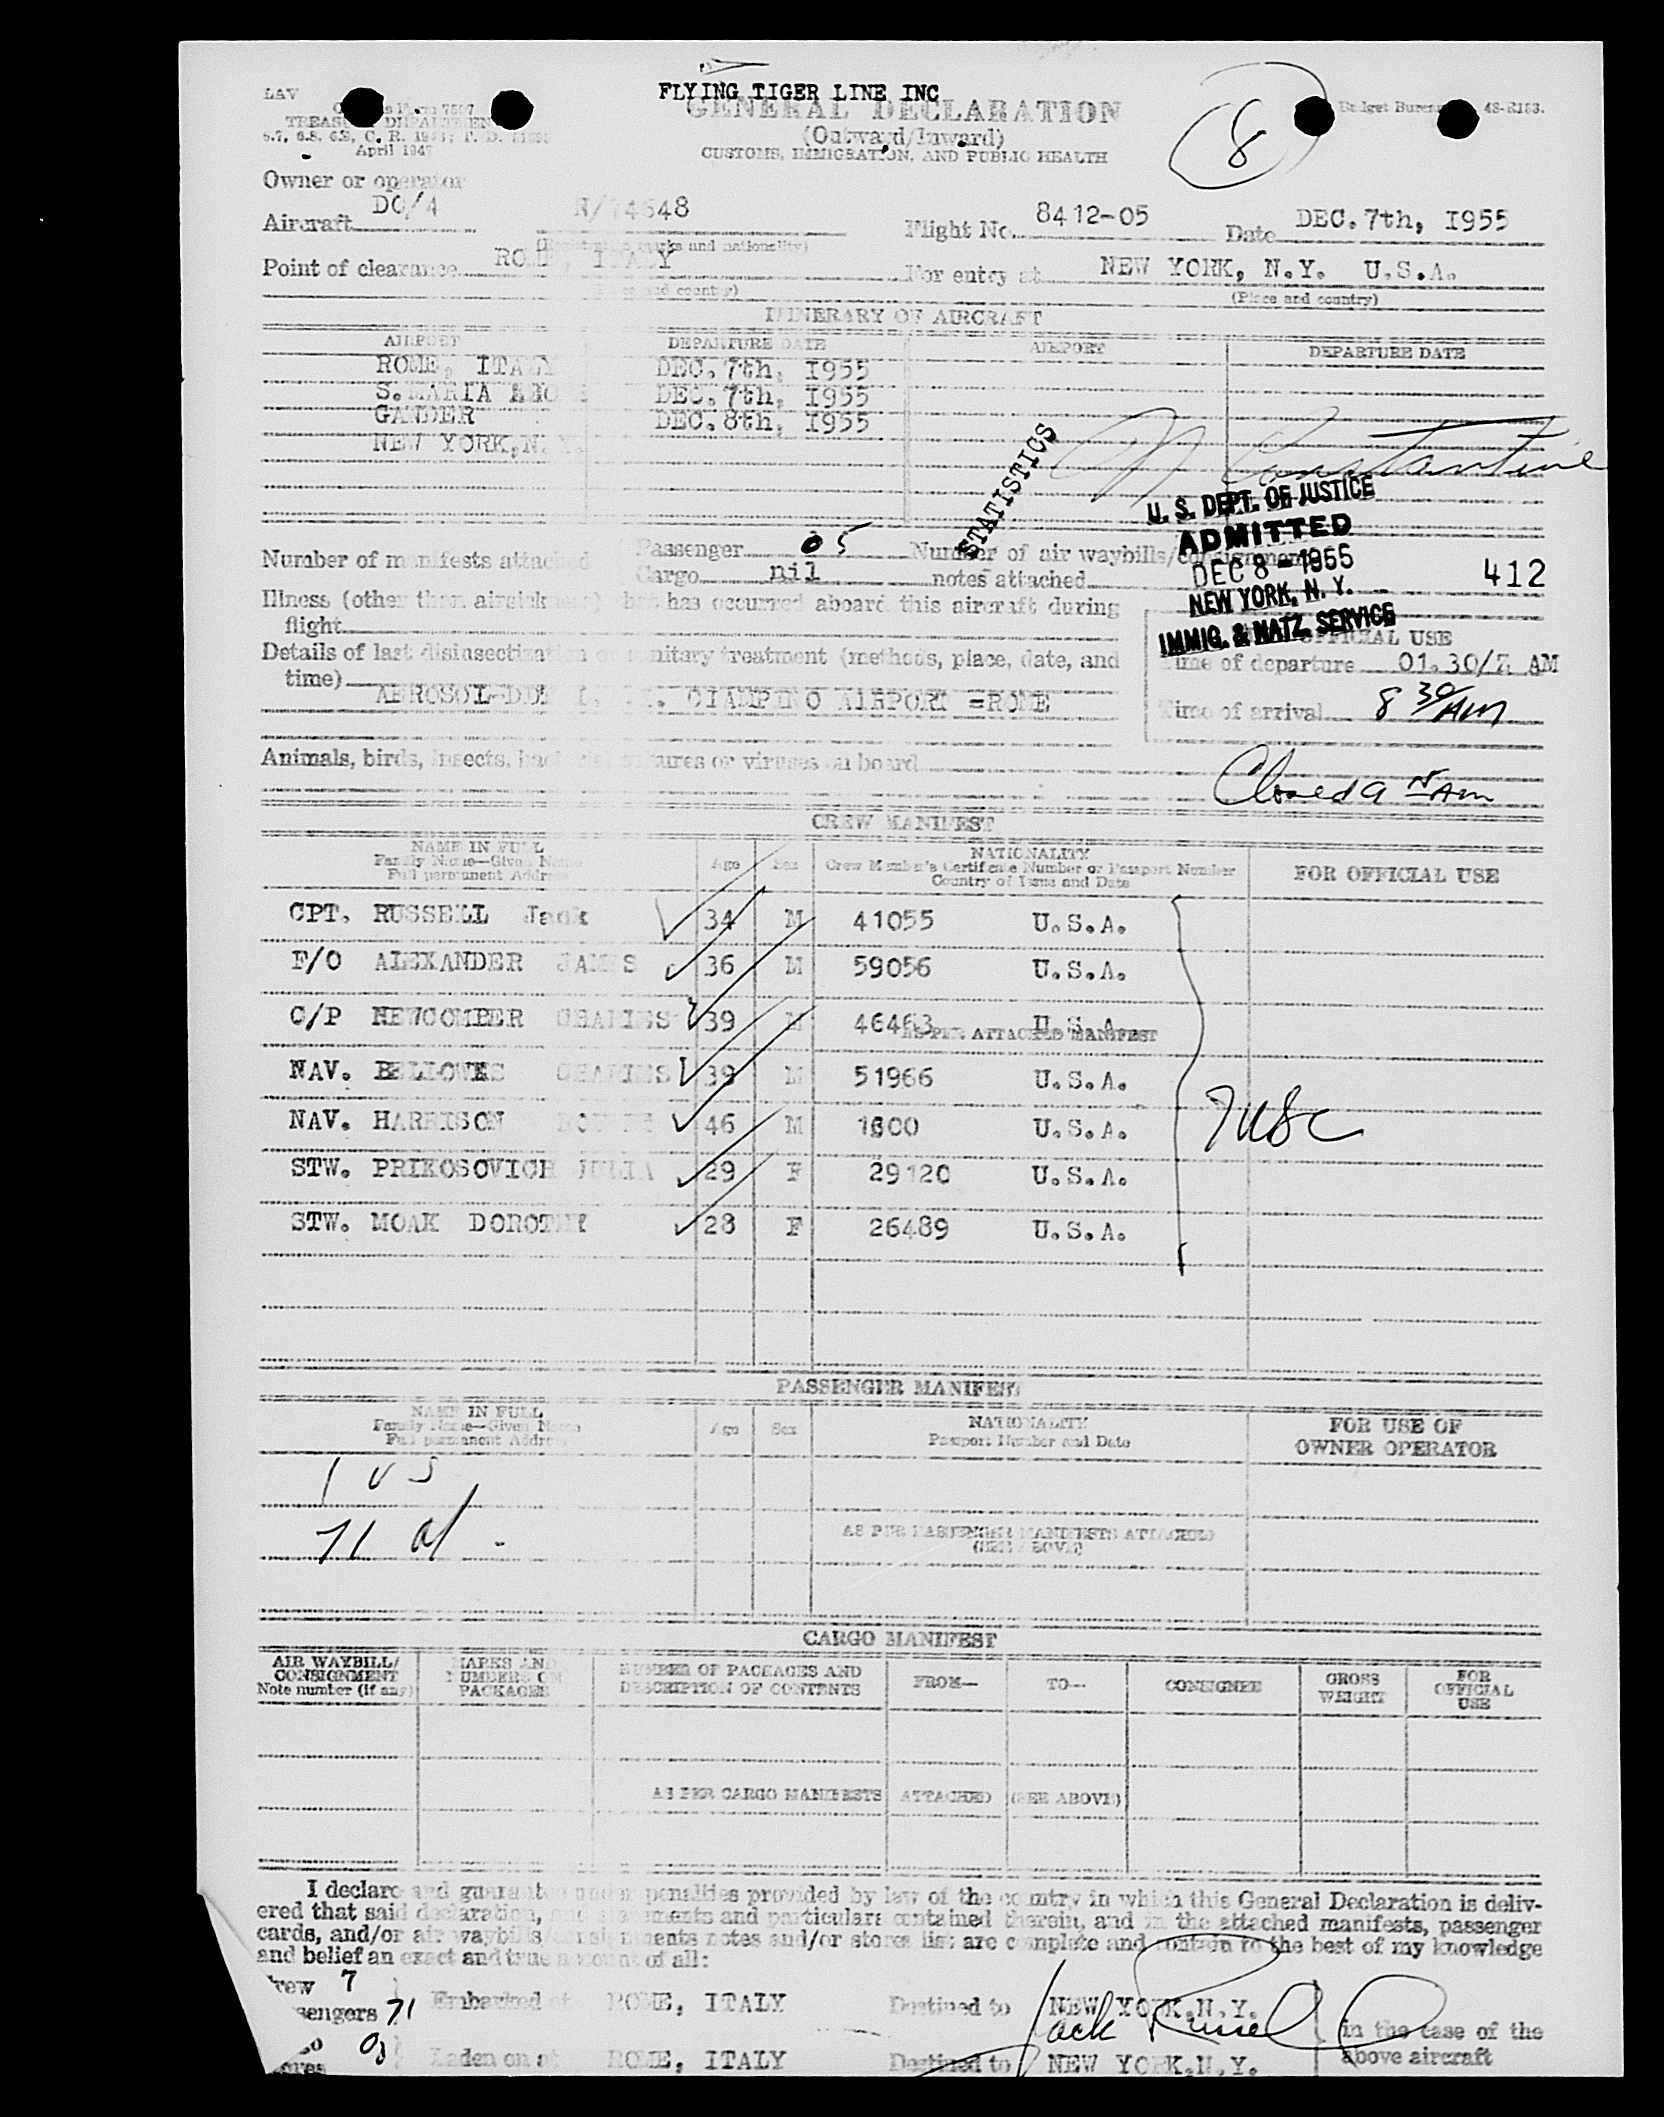 FLYING TIGER LINE INC
LAV
GENERAL DECLARATION
(Outward/Inward)
CUSTOMS, IMMIGRATION, AND PUBLIC HEALTH
April 1947
8
Owner or operator
Aircraft DC/4 N/74648 Flight No. 8412-05 Date DEC. 7th, 1955
(Registration marks and nationality)
Point of clearance ROME, ITALY For entry at NEW YORK, N.Y. U.S.A.
(Place and country) (Place and country)
ITINERARY OF AIRCRAFT
AIRPORT DEPARTURE DATE AIRPORT DEPARTURE DATE
ROME, ITALY DEC. 7th, 1955
S. MARIA DEC. 7th, 1955
GANDER DEC. 8th, 1955
NEW YORK, N.Y.
STATISTICS
Constantine
U. S. DEPT. OF JUSTICE
ADMITTED
DEC 8 - 1955
NEW YORK, N. Y.
IMMIG. & NATZ. SERVICE
412
Number of manifests attached Passenger 05 Number of air waybills/consignment
Cargo nil notes attached
Illness (other than airsickness) that has occurred aboard this aircraft during
flight
OFFICIAL USE
Details of last disinsectization or sanitary treatment (methods, place, date, and
time)
Time of departure 01.30/Z AM
CIAMPINO AIRPORT =ROME
Time of arrival 8 30/AM
Animals, birds, insects, bacterial cultures or viruses on board
Closed 9 15 AM
CREW MANIFEST
NAME IN FULL
Family Name—Given Name
Full permanent Address
Age Sex
NATIONALITY
Crew Member's Certificate Number or Passport Number
Country of Issue and Date
FOR OFFICIAL USE
CPT. RUSSELL Jack 34 M 41055 U.S.A.
F/O ALEXANDER JAMES 36 M 59056 U.S.A.
C/P NEWCOMBER CHARLES 39 M 46463 U.S.A.
AS PER ATTACHED MANIFEST
NAV. BELLOWES CHARLES 39 M 51966 U.S.A.
NAV. HARRISON 46 M 1800 U.S.A.
STW. PRIKOSOVICH JULIA 29 F 29120 U.S.A.
STW. MOAK DOROTHY 28 F 26489 U.S.A.
7 USC
PASSENGER MANIFEST
NAME IN FULL
Family Name—Given Name
Full permanent Address
Age Sex
NATIONALITY
Passport Number and Date
FOR USE OF
OWNER OPERATOR
71
AS PER PASSENGER MANIFESTS ATTACHED
(SEE ABOVE)
CARGO MANIFEST
AIR WAYBILL/
CONSIGNMENT
Note number (if any)
MARKS AND
NUMBERS ON
PACKAGES
NUMBER OF PACKAGES AND
DESCRIPTION OF CONTENTS
FROM—
TO—
CONSIGNEE
GROSS
WEIGHT
FOR
OFFICIAL
USE
AS PER CARGO MANIFESTS ATTACHED (SEE ABOVE)
I declare and guarantee under penalties provided by law of the country in which this General Declaration is deliv-
ered that said declaration, and statements and particulars contained therein, and in the attached manifests, passenger
cards, and/or air waybills/consignments notes and/or stores list are complete and contain to the best of my knowledge
and belief an exact and true account of all:
rew 7
sengers 71 Embarked at ROME, ITALY Destined to NEW YORK, N.Y.
Jack Russell
in the case of the
Laden on at ROME, ITALY Destined to NEW YORK, N.Y.
above aircraft